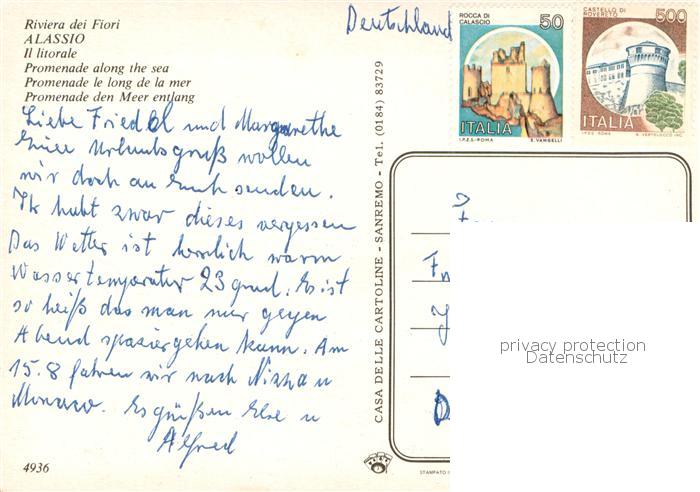 Riviera dei Fiori
ALASSIO
Il litorale
Promenade along the sea
Promenade le long de la mer
Promenade den Meer entlang
Liebe Friedel und Margarethe
Euch Urlaubsgruß wollen
wir doch an Euch senden.
Ihr habt zwar dieses vergessen
Das Wetter ist herrlich warm
Wassertemperatur 23 grad. Es ist
so heiß das man nur gegen
Abend spaziergehen kann. Am
15.8 fahren wir nach Nizza u
Monaco. Es grüßen Else u
Alfred
4936
CASA DELLE CARTOLINE - SANREMO - Tel. (0184) 83729
Deutschland
ROCCA DI CALASCIO
50
ITALIA
I.P.Z.S.-ROMA E. VANGELLI
CASTELLO DI ROVERETO
500
ITALIA
I.P.Z.S. ROMA
privacy protection
Datenschutz
STAMPATO